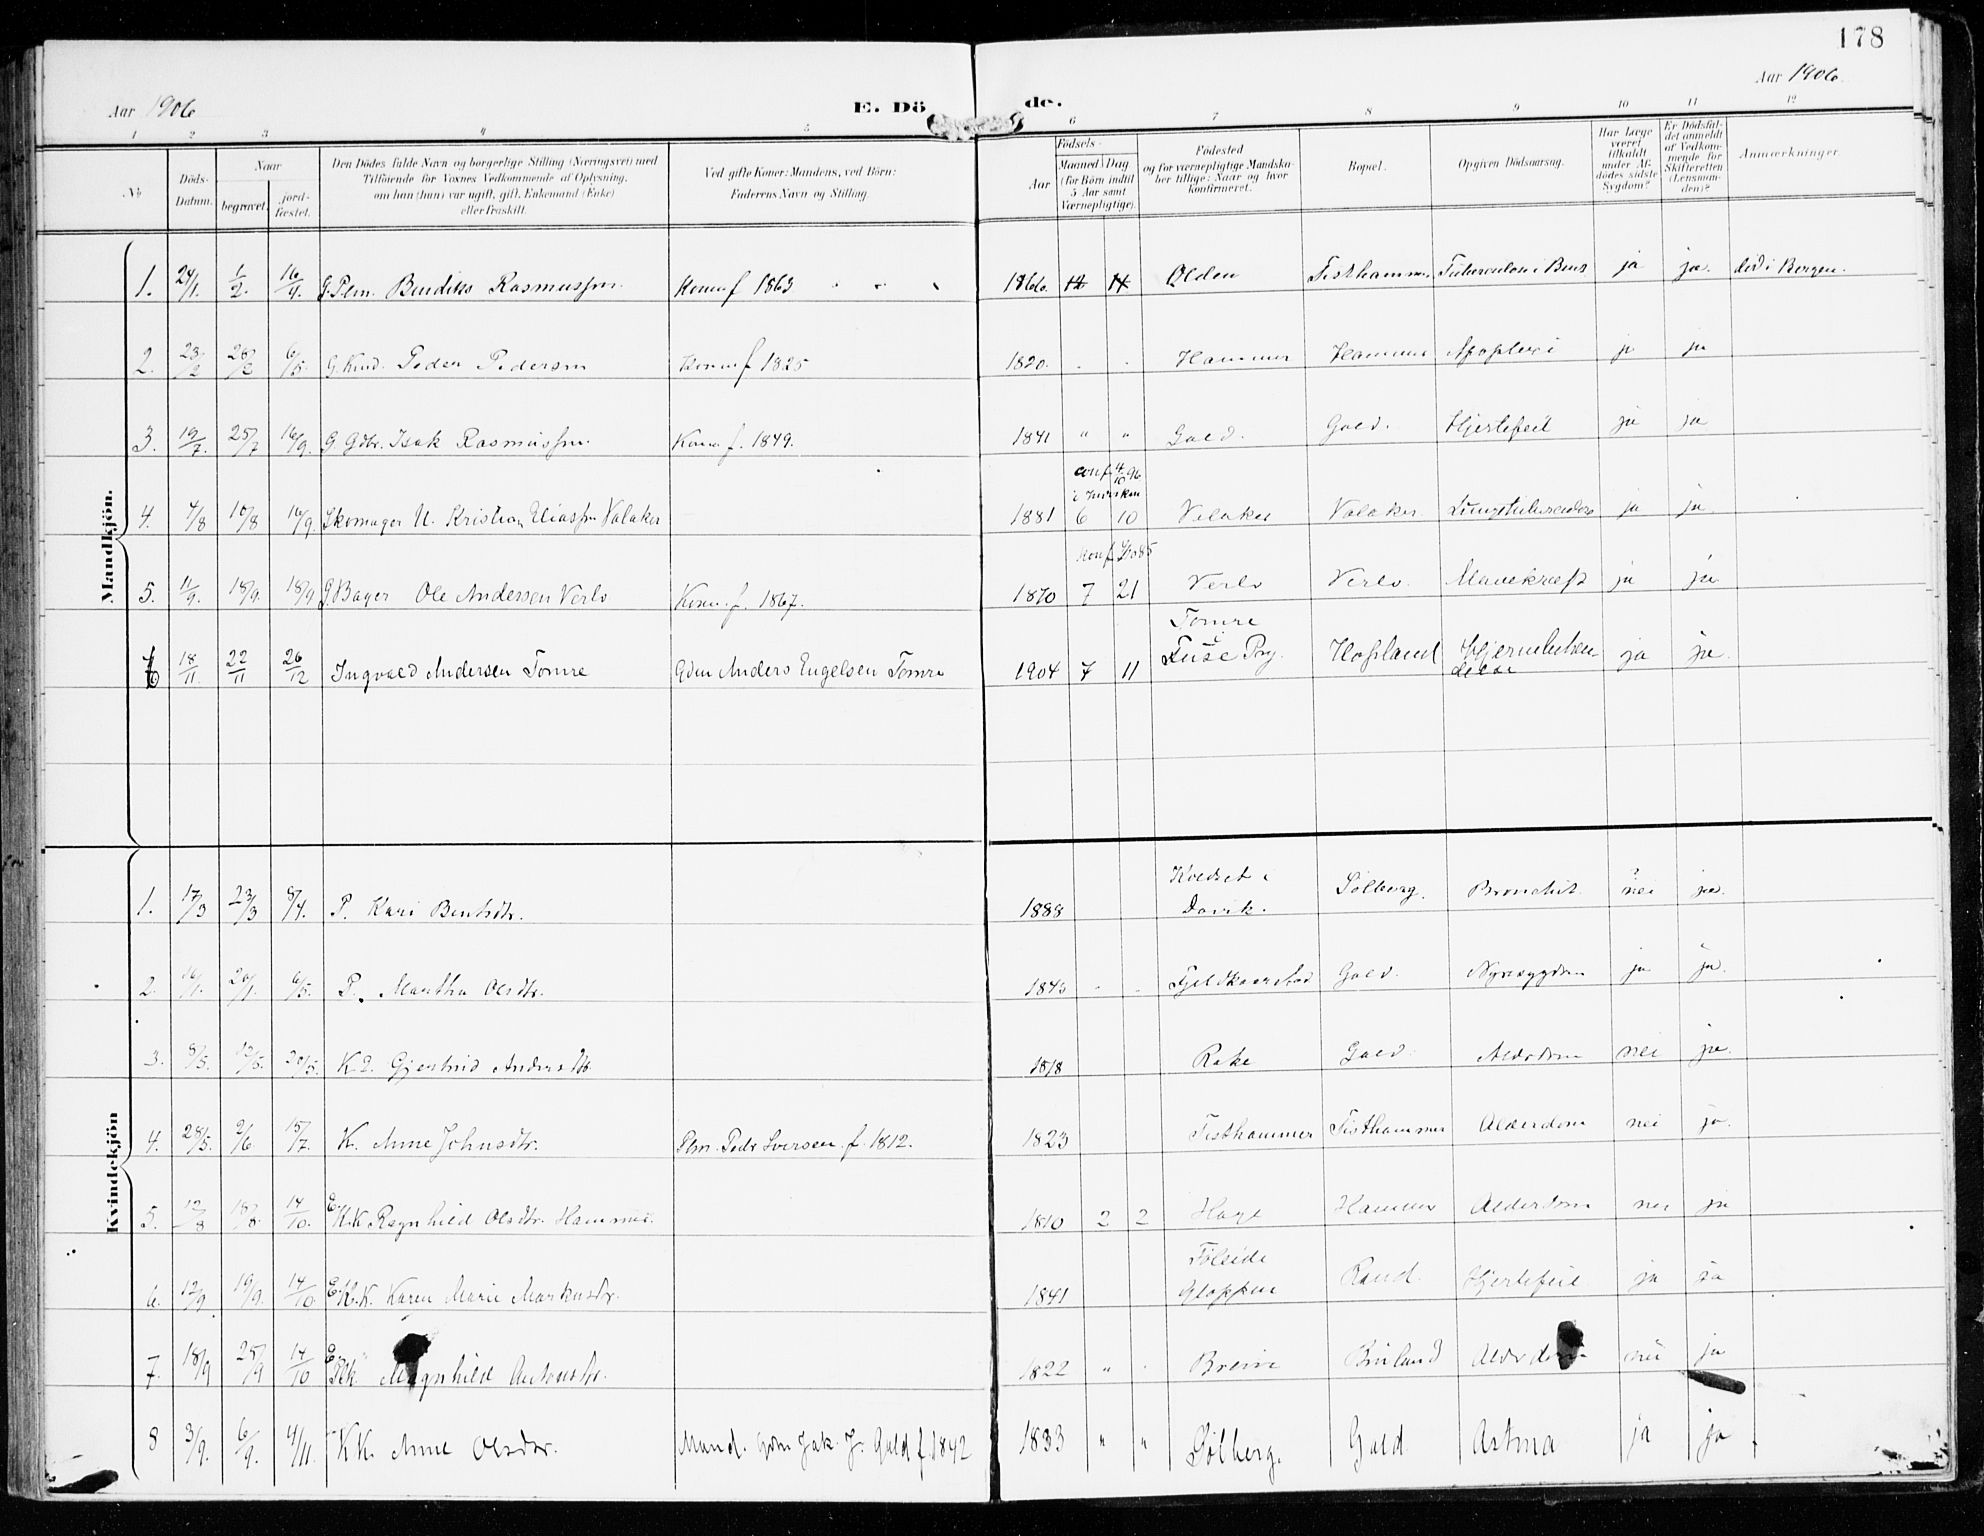 178
Aar 1906
E. Dö
de.
Aar 1906.
1 2 3 4 5 6 7 8 9 10 11 12
No
Döds-Datum.
Naar
begravet.
jord-fæstet.
Den Dödes fulde Navn og borgerlige Stilling (Næringsvei) med
Tilföiende for Voxnes Vedkommende af Oplysning,
om han (hun) var ugift, gift, Enkemand (Enke)
eller fraskilt.
Ved gifte Koner: Mandens, ved Börn:
Faderens Navn og Stilling.
Födsels-
Aar
Maaned Dag
(for Börn indtil
5 Aar samt
Værnepligtige).
Födested
og for værnepligtige Mandska-
ber tillige: Naar og hvor
konfirmeret.
Bopæl.
Opgiven Dödsaarsag.
Har Læge
været
tilkaldt
under Af-
dödes sidste
Sygdom?
Er Dödsfal-
det anmeldt
af Vedkom-
mende for
Skifteretten
(Lensman-
den)?
Anmærkninger.
Mandkjön.
1. 24/1. 1/2. 16/9. G. Plm. Bendiks Rasmussøn. Kone f 1863 1866. 12 11 Olden Tisthammer Tuberculose i Bens ja ja. død i Bergen.
2. 23/2 28/2 6/5. G. Kmd. Peder Pedersøn Kone f 1825 1820. Hammer Hammer Apoplexi ja ja
3. 19/7. 25/7 16/9. G. Gdbr. Isak Rasmussøn. Kone f. 1849. 1841 " " Gald. Gald. Hjertefeil ja ja
conf 4/10 96
i Inviken
4. 4/8 10/8 16/9. Skomager U. Kristian Eliassøn Valaker 1881 6 10 Valaker Valaker Lungetuberculose ja ja
5. 11/9. 18/9. 18/9 G Bager Ole Andersen Verlo Kone f. 1867. 1870 7 21 Verlo Verlo. Mavekræft ja ja
Tomre
6 18/11. 22/11 26/12 Ingvald Andersen Tomre Gdm Anders Engelsen Tomre 1904 7 11 Fuse Pg. Hopland Hjernebeten-
delse ja ja
Kvindekjön
1. 17/3 23/3 8/4. P. Kari Bentsdtr. 1888 Kvedset i
Davik. Solberg. Bronchit. nei ja.
2. 16/1. 20/1. 6/5. P. Martha Olsdtr. 1843 Gald. Nyresygdom ja ja.
3. 8/5. 12/5. 20/5. Gjertrud Andersdtr. 1818 Rake Gald. Alderdom nei ja.
4. 28/5. 2/6 15/7. K. Anne Johnsdtr. Plm. Peder Iversen f. 1812. 1823 Tisthammer Tisthammer Alderdom nei ja.
5. 12/8 18/8. 14/10. E. K.K Ragnhild Olsdtr. Hammer. 1810 2 2 Hage Hammer Alderdom nei ja
6. 12/9 19/9. 14/10 E. K.K. Karen Marie Markusdtr. 1841 Gloppen Rand. Hjertefeil ja ja
7. 18/9 25/9 14/10 E. Magnhild Antonsdtr. 1822 " Breim Alderdom nei ja
8 3/9. 6/9. 4/11. K K. Anne Olsdtr. Mand. Gdm Jak. J. Gald f 1842 1833 " " Solberg. Gald Astma ja ja